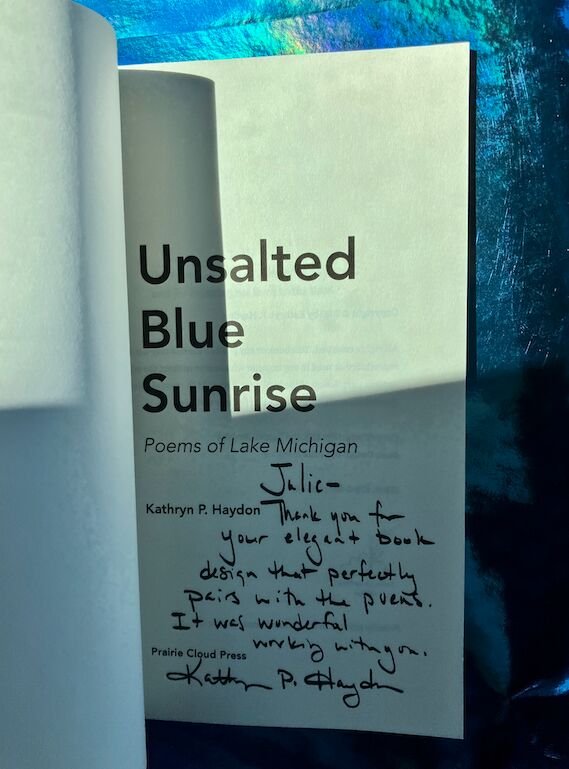 Unsalted
Blue
Sunrise
Poems of Lake Michigan
Julie-
Kathryn P. Haydon
Thank you for
your elegant book
design that perfectly
pairs with the poems.
It was wonderful
working with you.
Prairie Cloud Press
Kathryn P. Haydon